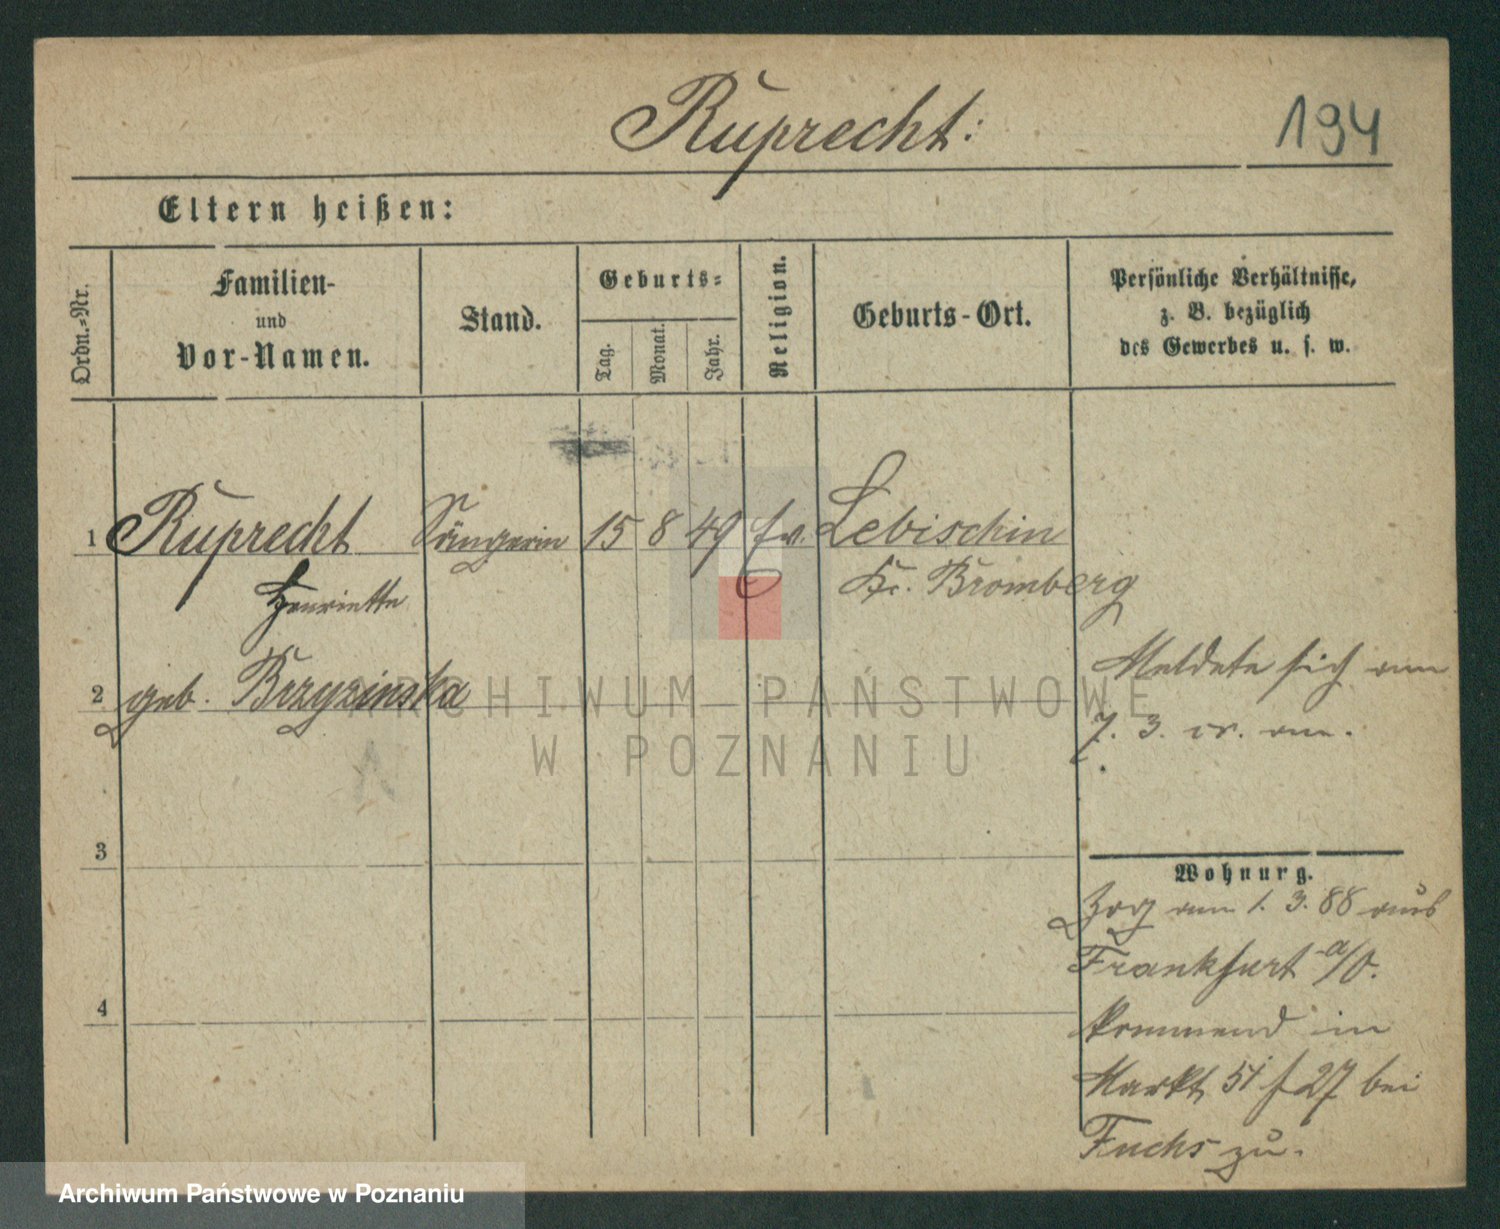 Ruprecht:
194
Eltern heißen:
Ordn.-Nr.
Familien-
und
Vor-Namen.
Stand.
Geburts-
Tag.
Monat.
Jahr.
Religion.
Geburts-Ort.
Persönliche Verhältnisse,
z. B. bezüglich
des Gewerbes u. s. w.
1 Ruprecht Sängerin 15 8 49 ev. Lebischin
Henriette Kr. Bromberg
2 geb. Brzyzinska
Meldete sich am
7. 3. cr. an.
3
Wohnung.
Zog am 1. 3. 88 aus
Frankfurt a/O.
4
kommend in
Markt 51 27 bei
Fuchs zu.
ARCHIWUM PAŃSTWOWE
W POZNANIU
Archiwum Państwowe w Poznaniu